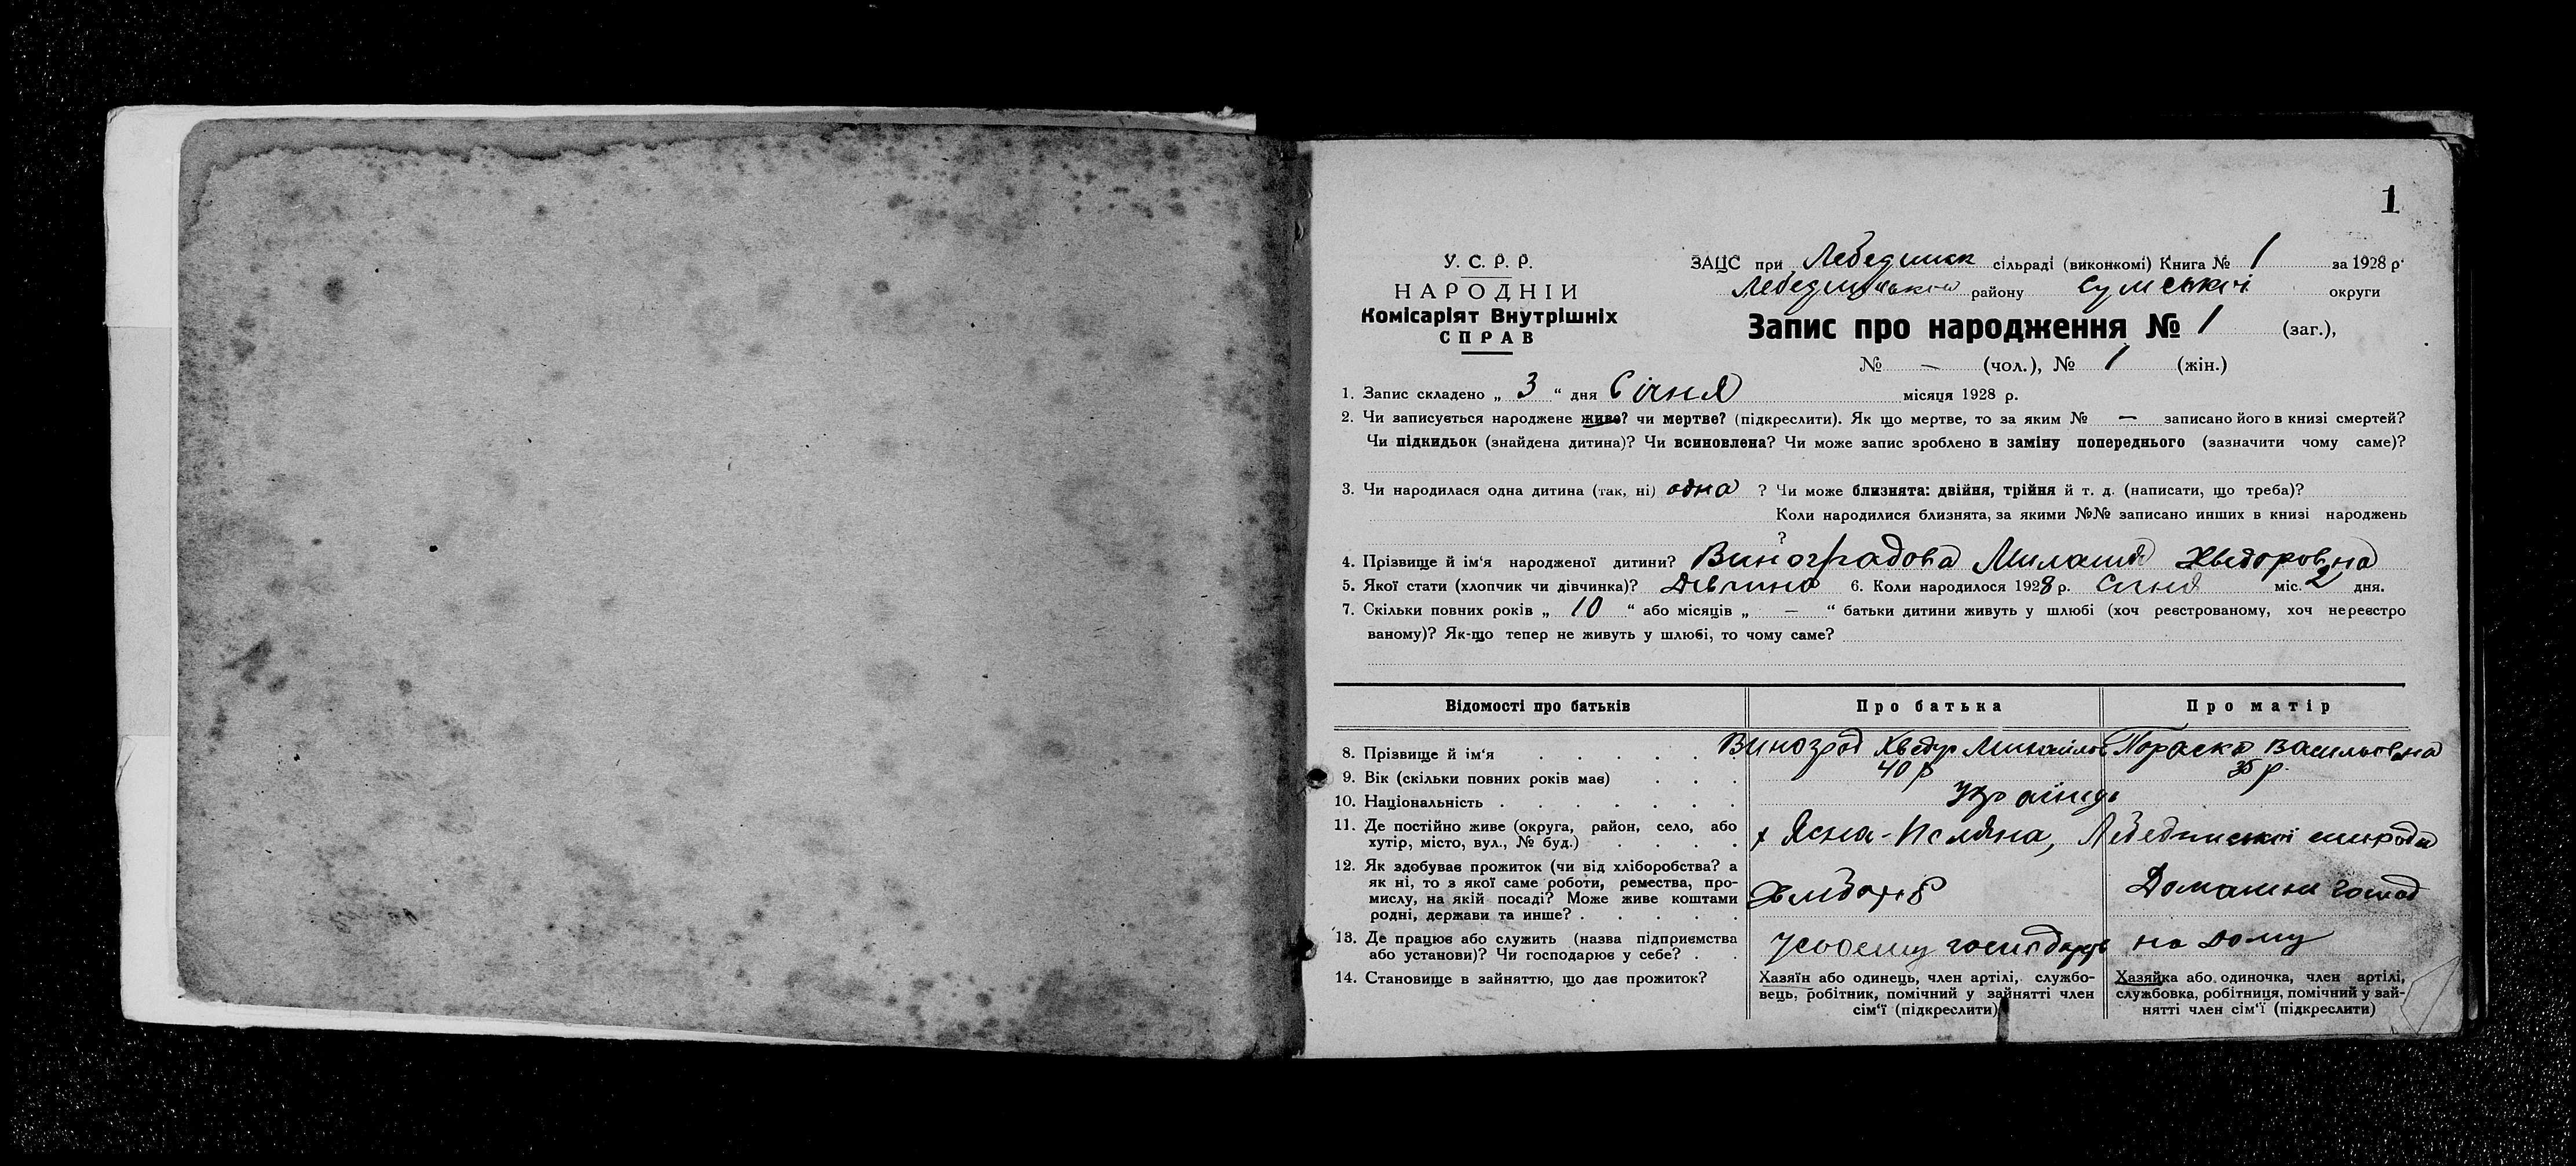 1
У. С. Р. Р.
НАРОДНІЙ
Комісаріят Внутрішніх
СПРАВ
ЗАЦС при Лебединск сільраді (виконкомі) Книга № 1 за 1928 р.
району Сумської округи
Запис про народження № 1 (заг.),
№ — (чол.), № 1 (жін.)
1. Запис складено „ 3 “ дня Січня місяця 1928 р.
2. Чи записується народжене живе? чи мертве? (підкреслити). Як що мертве, то за яким № — записано його в книзі смертей?
Чи підкидьок (знайдена дитина)? Чи всиновлена? Чи може запис зроблено в заміну попереднього (зазначити чому саме)?
3. Чи народилася одна дитина (так, ні) одна ? Чи може близнята: двійня, трійня й т. д. (написати, що треба)?
Коли народилися близнята, за якими №№ записано инших в книзі народжень
?
4. Прізвище й ім‘я народженої дитини? Виноградова Миланія Хведоровна
5. Якої стати (хлопчик чи дівчинка)? Дівчина 6. Коли народилося 1928 р. Січня міс. 2 дня.
7. Скільки повних років „ 10 “ або місяців „ — “ батьки дитини живуть у шлюбі (хоч реєстрованому, хоч нереєстро
ваному)? Як-що тепер не живуть у шлюбі, то чому саме?
Відомості про батьків Про батька Про матір
8. Прізвище й ім‘я Виноград Хведур Михайлов Пораска Васильовна
9. Вік (скільки повних років має) 40 р 35 р.
10. Національність Українці
11. Де постійно живе (округа, район, село, або
хутір, місто, вул., № буд.) х Ясна-Поляна, Лебединської
12. Як здобуває прожиток (чи від хліборобства? а
як ні, то з якої саме роботи, ремества, про-
мислу, на якій посаді? Може живе коштами
родні, держави та инше? Хлібороб Домашнє господ
13. Де працює або служить (назва підприємства
або установи)? Чи господарює у себе? У своєму господарстві на дому
14. Становище в зайняттю, що дає прожиток?
Хазяїн або одинець, член артілі, службо-
вець, робітник, помічний у зайнятті член
сім‘ї (підкреслити)
Хазяйка або одиночка, член артілі,
службовка, робітниця, помічний у зай-
нятті член сім‘ї (підкреслити)